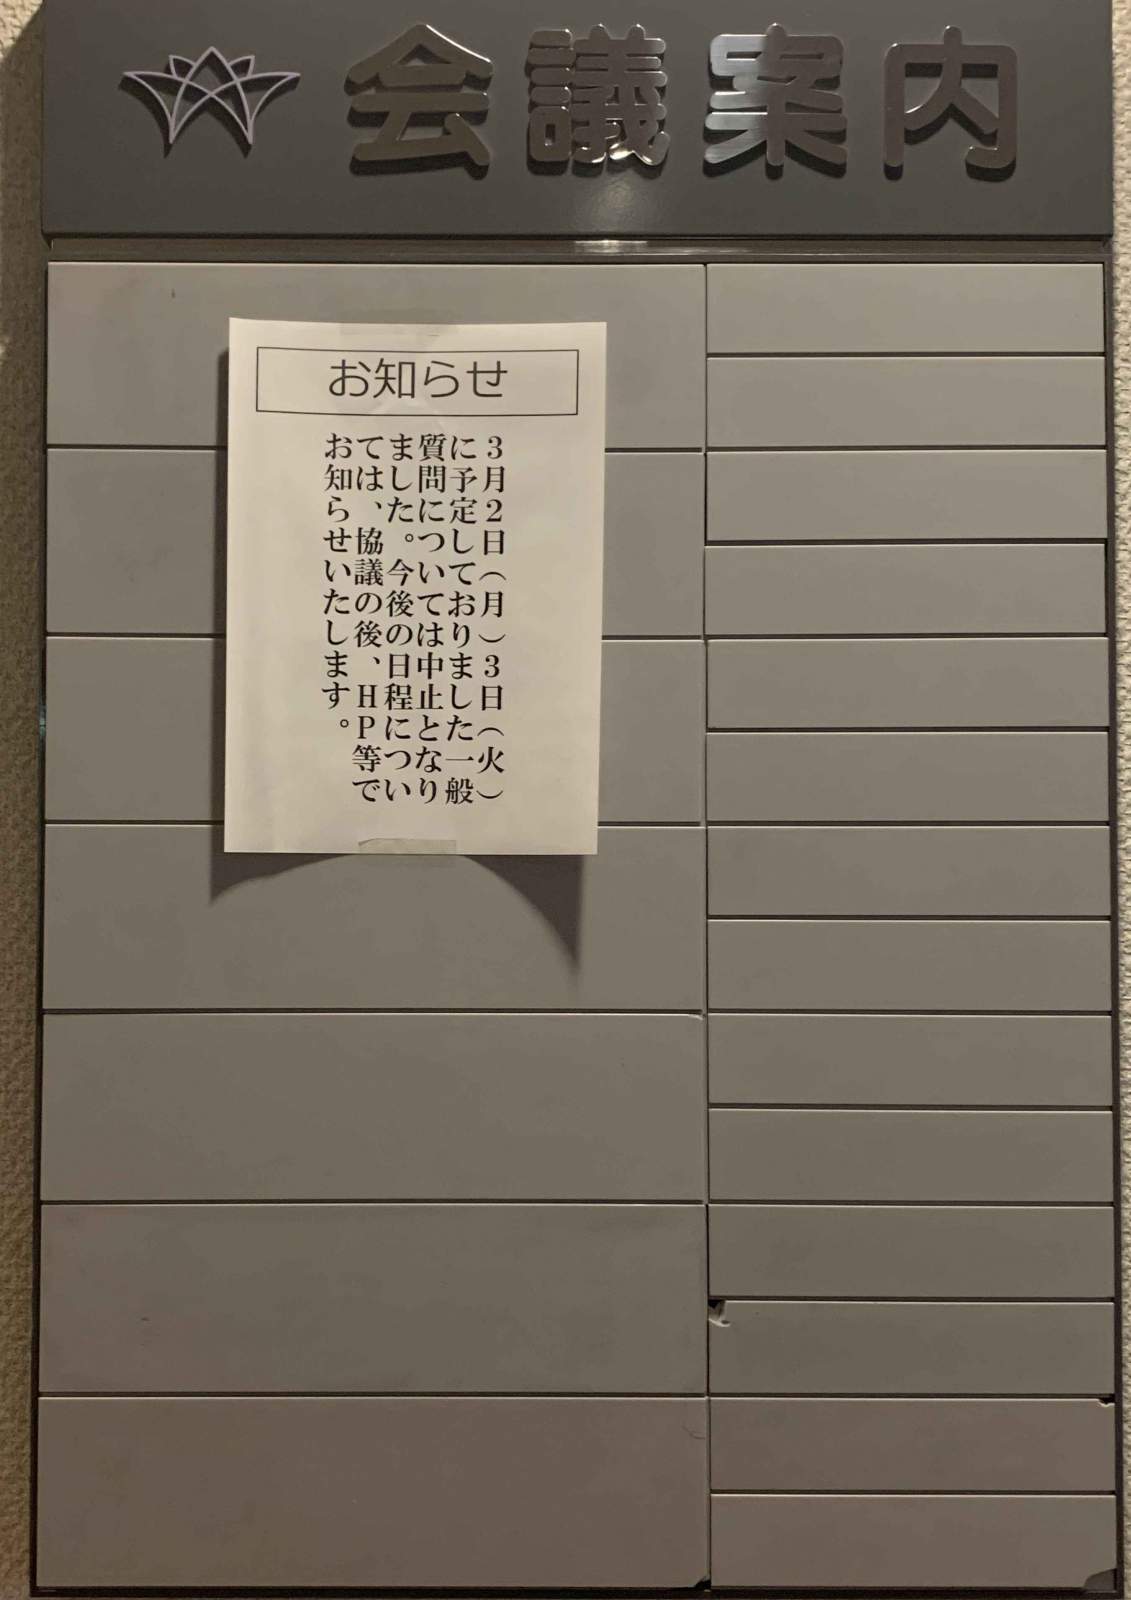 会議案内
お知らせ
３月２日（月）３日（火）
に予定しておりました一般
質問については中止となり
ました。今後の日程につい
ては、協議の後、ＨＰ等で
お知らせいたします。